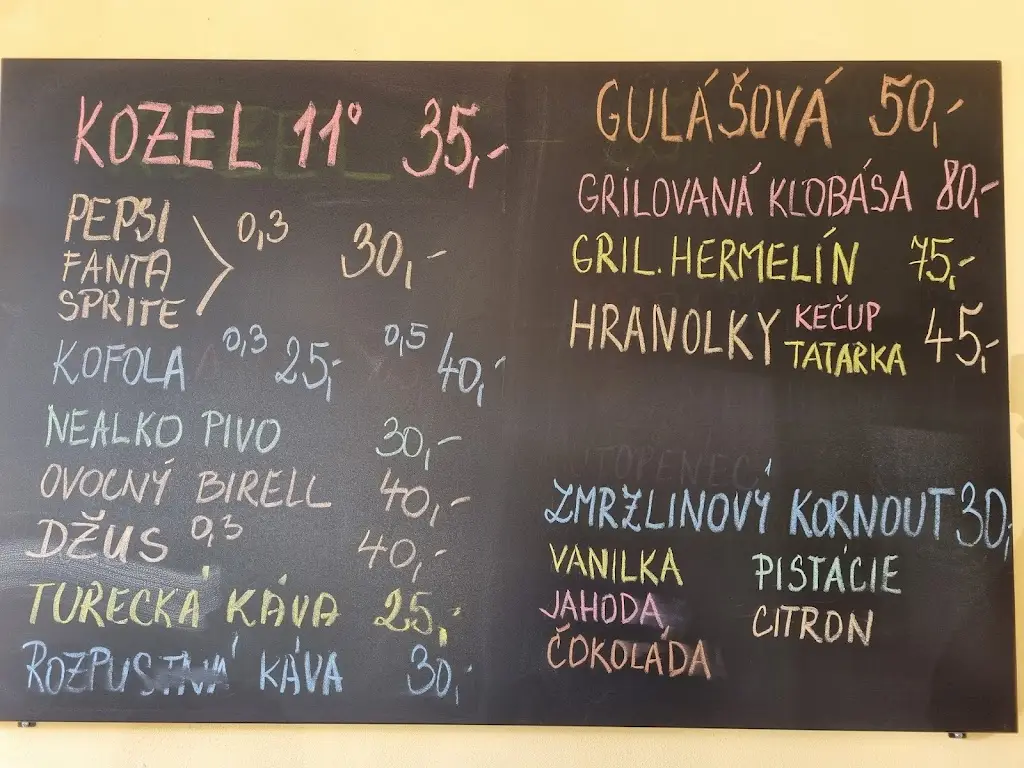 KOZEL 11° 35,-
PEPSI
FANTA
SPRITE
0,3 30,-
KOFOLA 0,3 25,- 0,5 40,-
NEALKO PIVO 30,-
OVOCNÝ BIRELL 40,-
DŽUS 0,3 40,-
TURECKÁ KÁVA 25,-
ROZPUSTNÁ KÁVA 30,-
GULÁŠOVÁ 50,-
GRILOVANÁ KLOBÁSA 80,-
GRIL. HERMELÍN 75,-
HRANOLKY KEČUP TATARKA 45,-
UTOPENEC
ZMRZLINOVÝ KORNOUT 30,-
VANILKA PISTÁCIE
JAHODA CITRON
ČOKOLÁDA